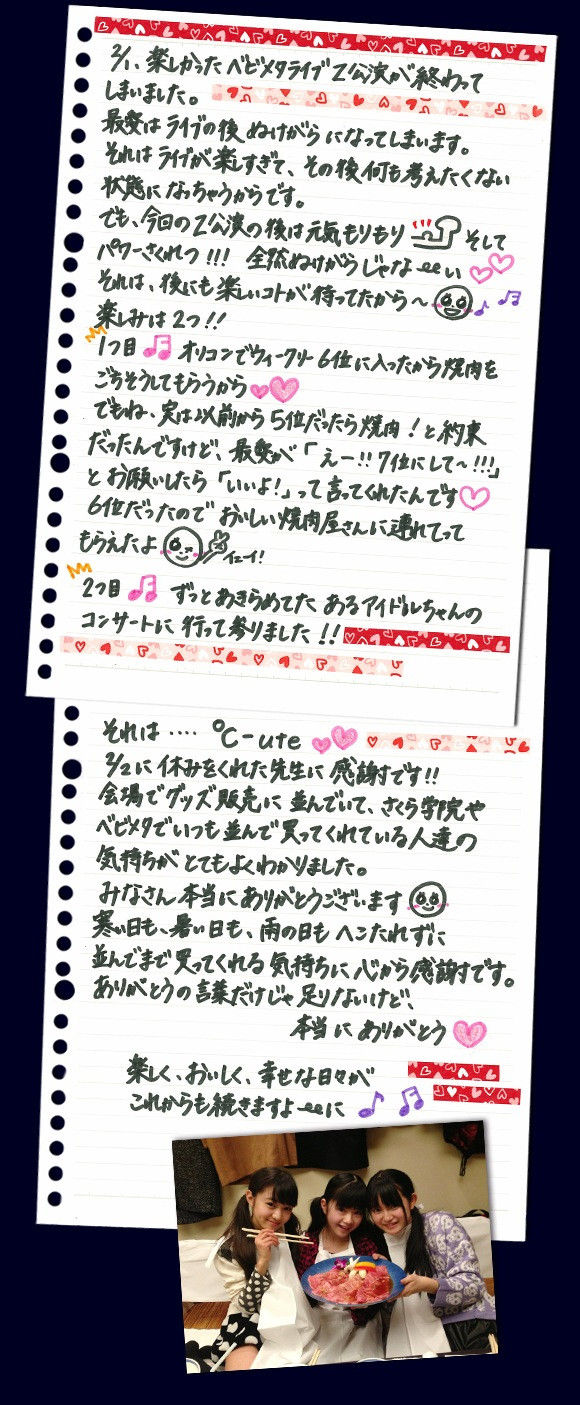 2/1、楽しかったベビメタライブ2公演が終わって
しまいました。
最愛はライブの後ぬけがらになってしまいます。
それはライブが楽しすぎて、その後何も考えたくない
状態になっちゃうからです。
でも、今回の2公演の後は元気もりもり そして
パワーさくれつ!!! 全然ぬけがらじゃな〜い
それは、後にも楽しいコトが待ってたから〜
楽しみは2つ!!
1つ目 オリコンでウィークリー6位に入ったから焼肉を
ごちそうしてもらうから
でもね、実は以前から5位だったら焼肉!と約束
だったんですけど、最愛が「えー!!7位にして〜!!!」
とお願いしたら「いいよ!」って言ってくれたんです
6位だったのでおいしい焼肉屋さんに連れてって
もらえたよ イエーイ!
2つ目 ずっとあきらめてた あるアイドルちゃんの
コンサートに行って参りました!!
それは‥‥ ℃-ute
2/2に休みをくれた先生に感謝です!!
会場でグッズ販売に並んでいて、さくら学院や
ベビメタでいつも並んで買ってくれている人達の
気持ちがとてもよくわかりました。
みなさん本当にありがとうございます
寒い日も、暑い日も、雨の日もへこたれずに
並んでまで買ってくれる気持ちに心から感謝です。
ありがとうの言葉だけじゃ足りないけど、
本当にありがとう
楽しく、おいしく、幸せな日々が
これからも続きますよ〜に